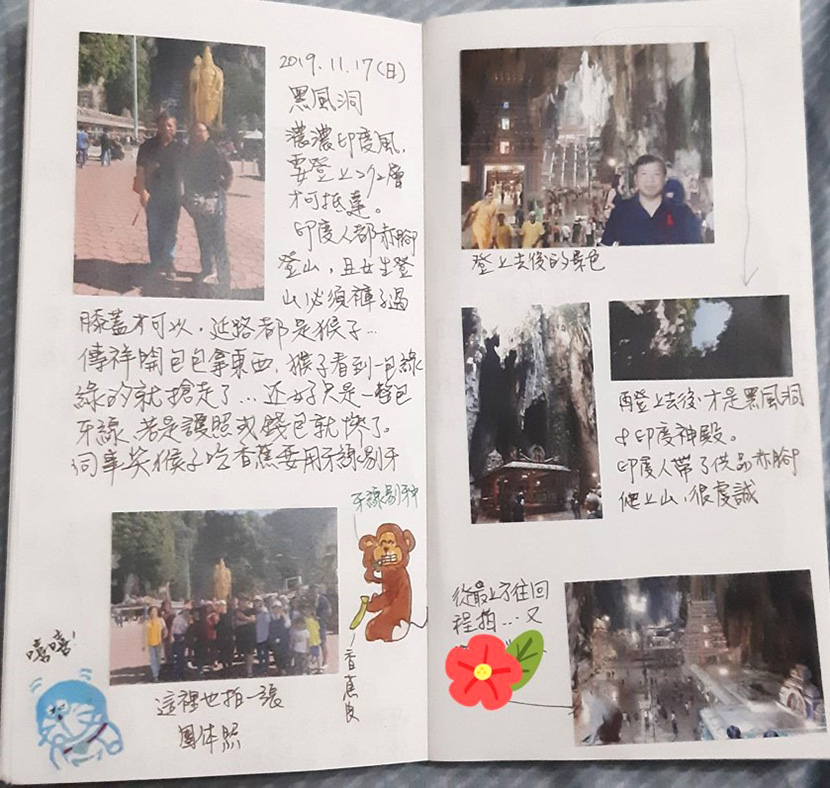 2019.11.17(日)
黑風洞
濃濃印度風,
要登上272層
才可抵達。
印度人都赤腳
登山,且女生登
山必須褲子過
膝蓋才可以,延路都是猴子…
傳祥開包包拿東西,猴子看到一包綠
綠的就搶走了…还好只是一整包
牙線,若是護照或錢包就慘了。
同事笑猴子吃香蕉要用牙線剔牙
牙線剔牙中
香蕉皮
嘻嘻!
這裡也拍一張
團体照
登上去後的景色
再登上去後,才是黑風洞
&印度神殿。
印度人帶了供品赤腳
爬上山,很虔誠
從最上方往回
程拍…又